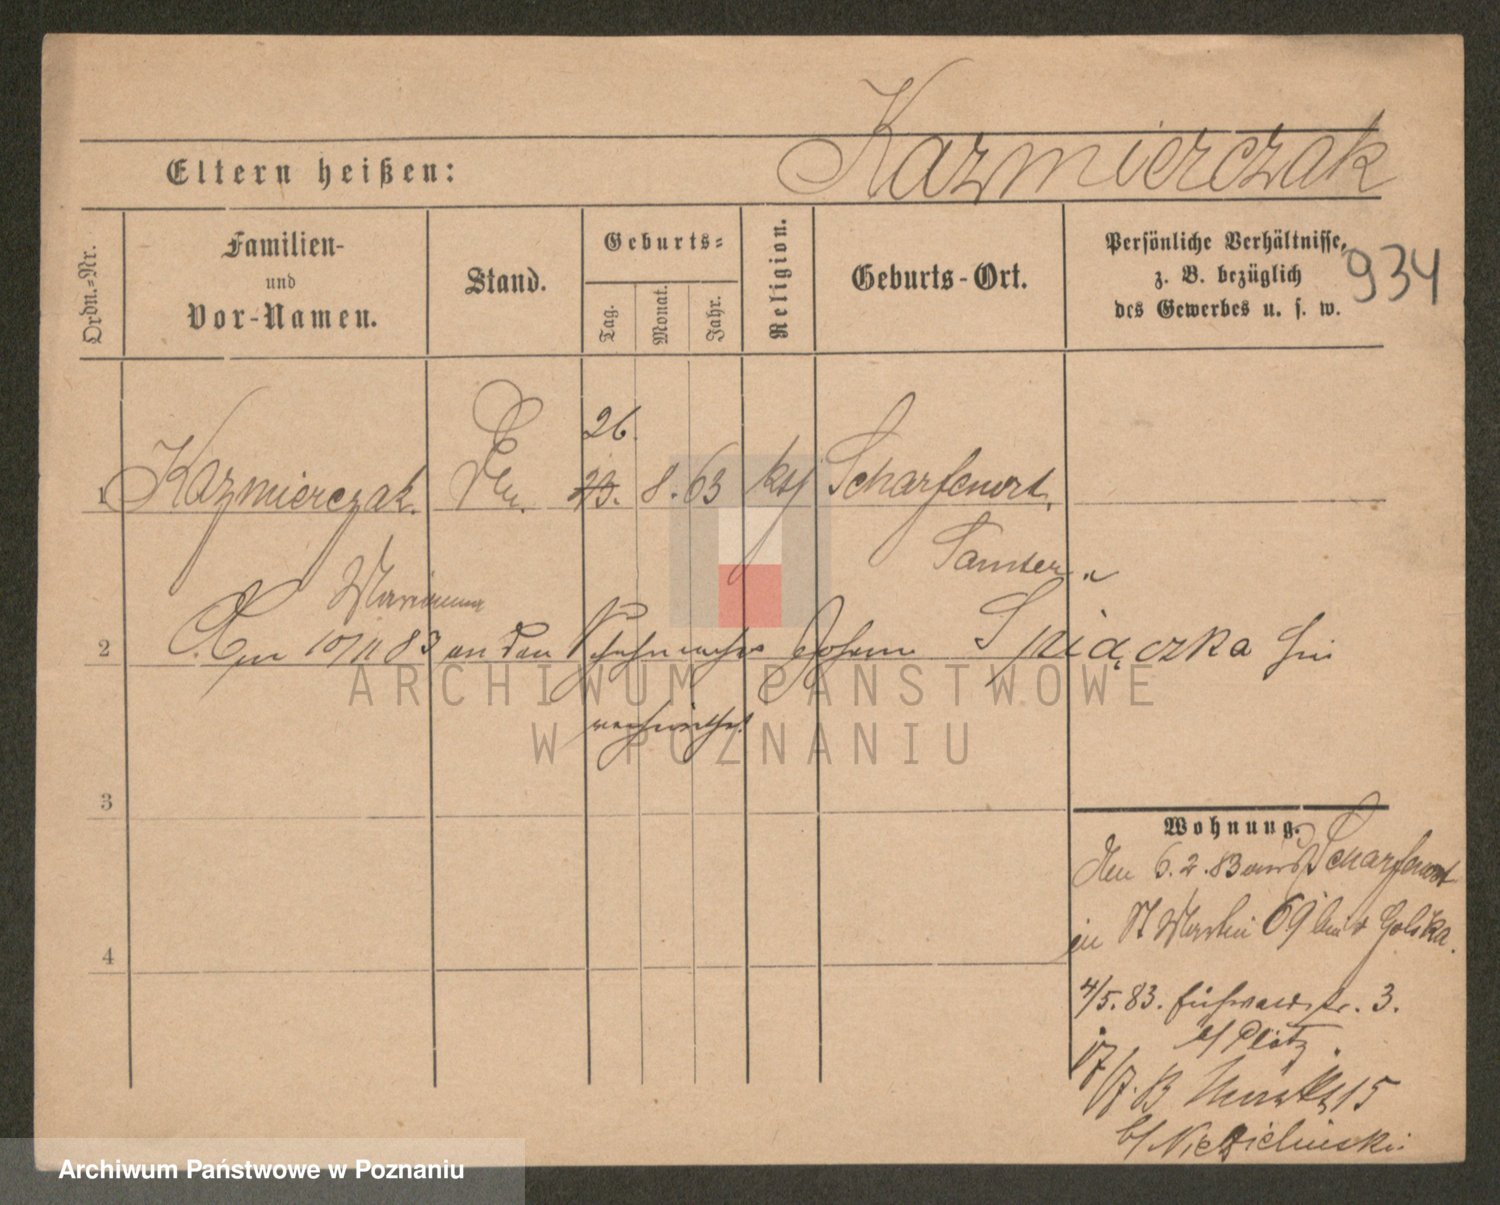 Kazmierczak
Eltern heißen:
934
Ordn.-Nr.
Familien-
und
Vor-Namen.
Stand.
Geburts-
Tag.
Monat.
Jahr.
Religion.
Geburts-Ort.
Persönliche Verhältnisse,
z. B. bezüglich
des Gewerbes u. s. w.
26.
1 Kazmierczak. 23. 8. 63 kth Scharfenort.
Marianna Samter
2 Am 10/11 83 an den Schuhmacher Johann Spiączka hier
verheirathet.
3
4
Wohnung.
Den 6.2.83 aus Scharfenort
in St Martin 69 bei Golska.
4/5.83. Fischerei 3.
b/ Plötz.
17/7. 83 Markt 15
b/ Niezielinski
ARCHIWUM PAŃSTWOWE
W POZNANIU
Archiwum Państwowe w Poznaniu